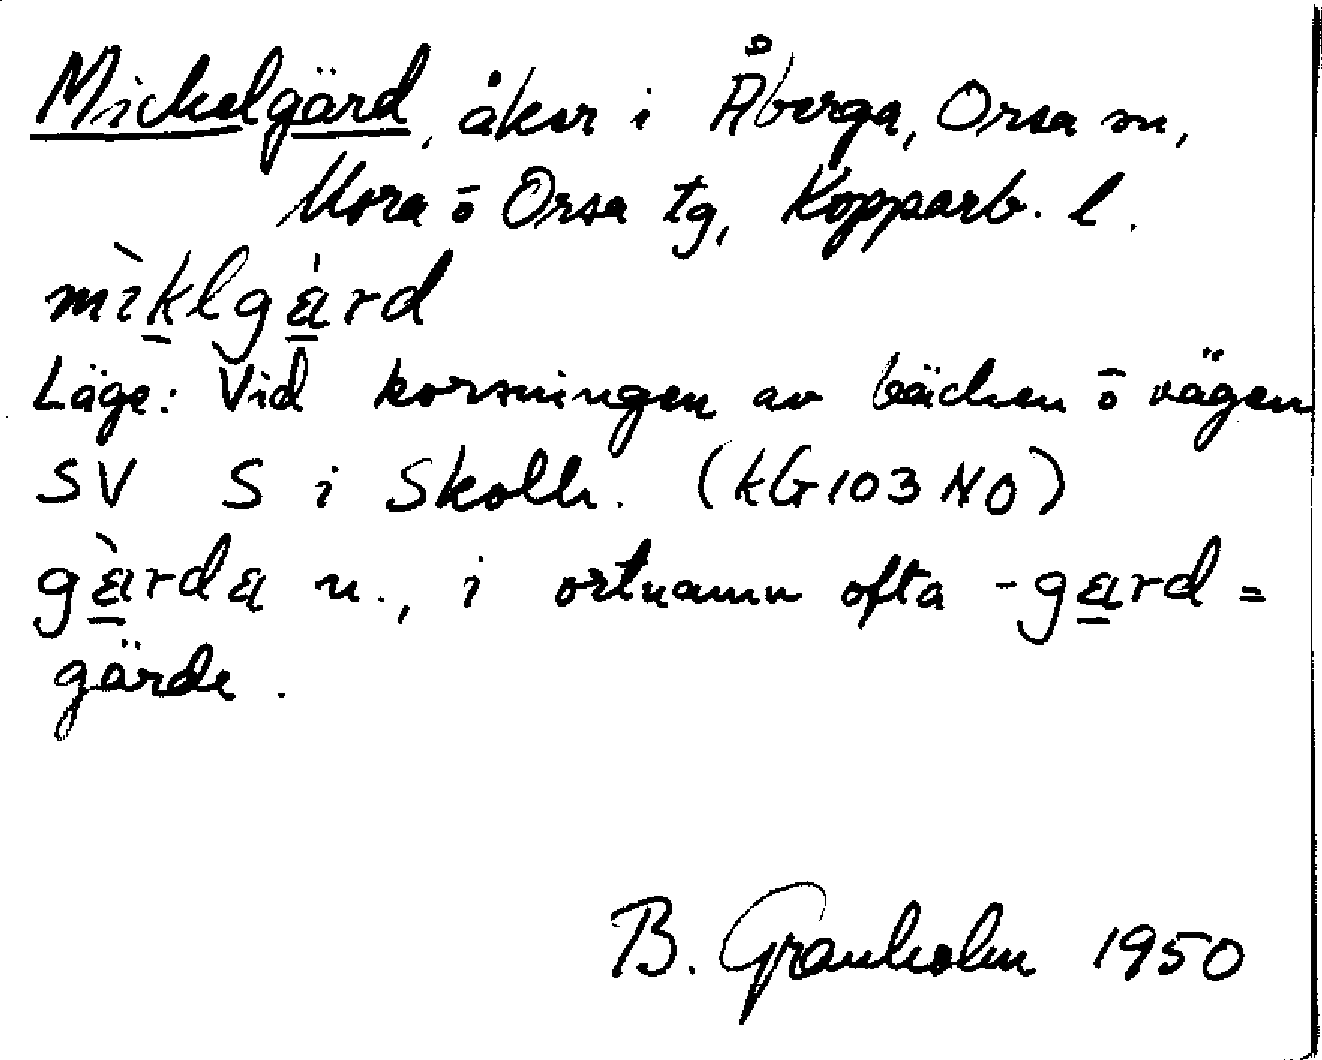 Mickelgärd, åker i Åberga, Orsa sn,
Mora ō Orsa tg, Kopparb. l.
mìklgárd
Läge: Vid korsningen av bäcken ō vägen
SV S i Skolh. (kG103NO)
gàrda n., i ortnamn ofta -gard =
gärde.
B. Granholm 1950